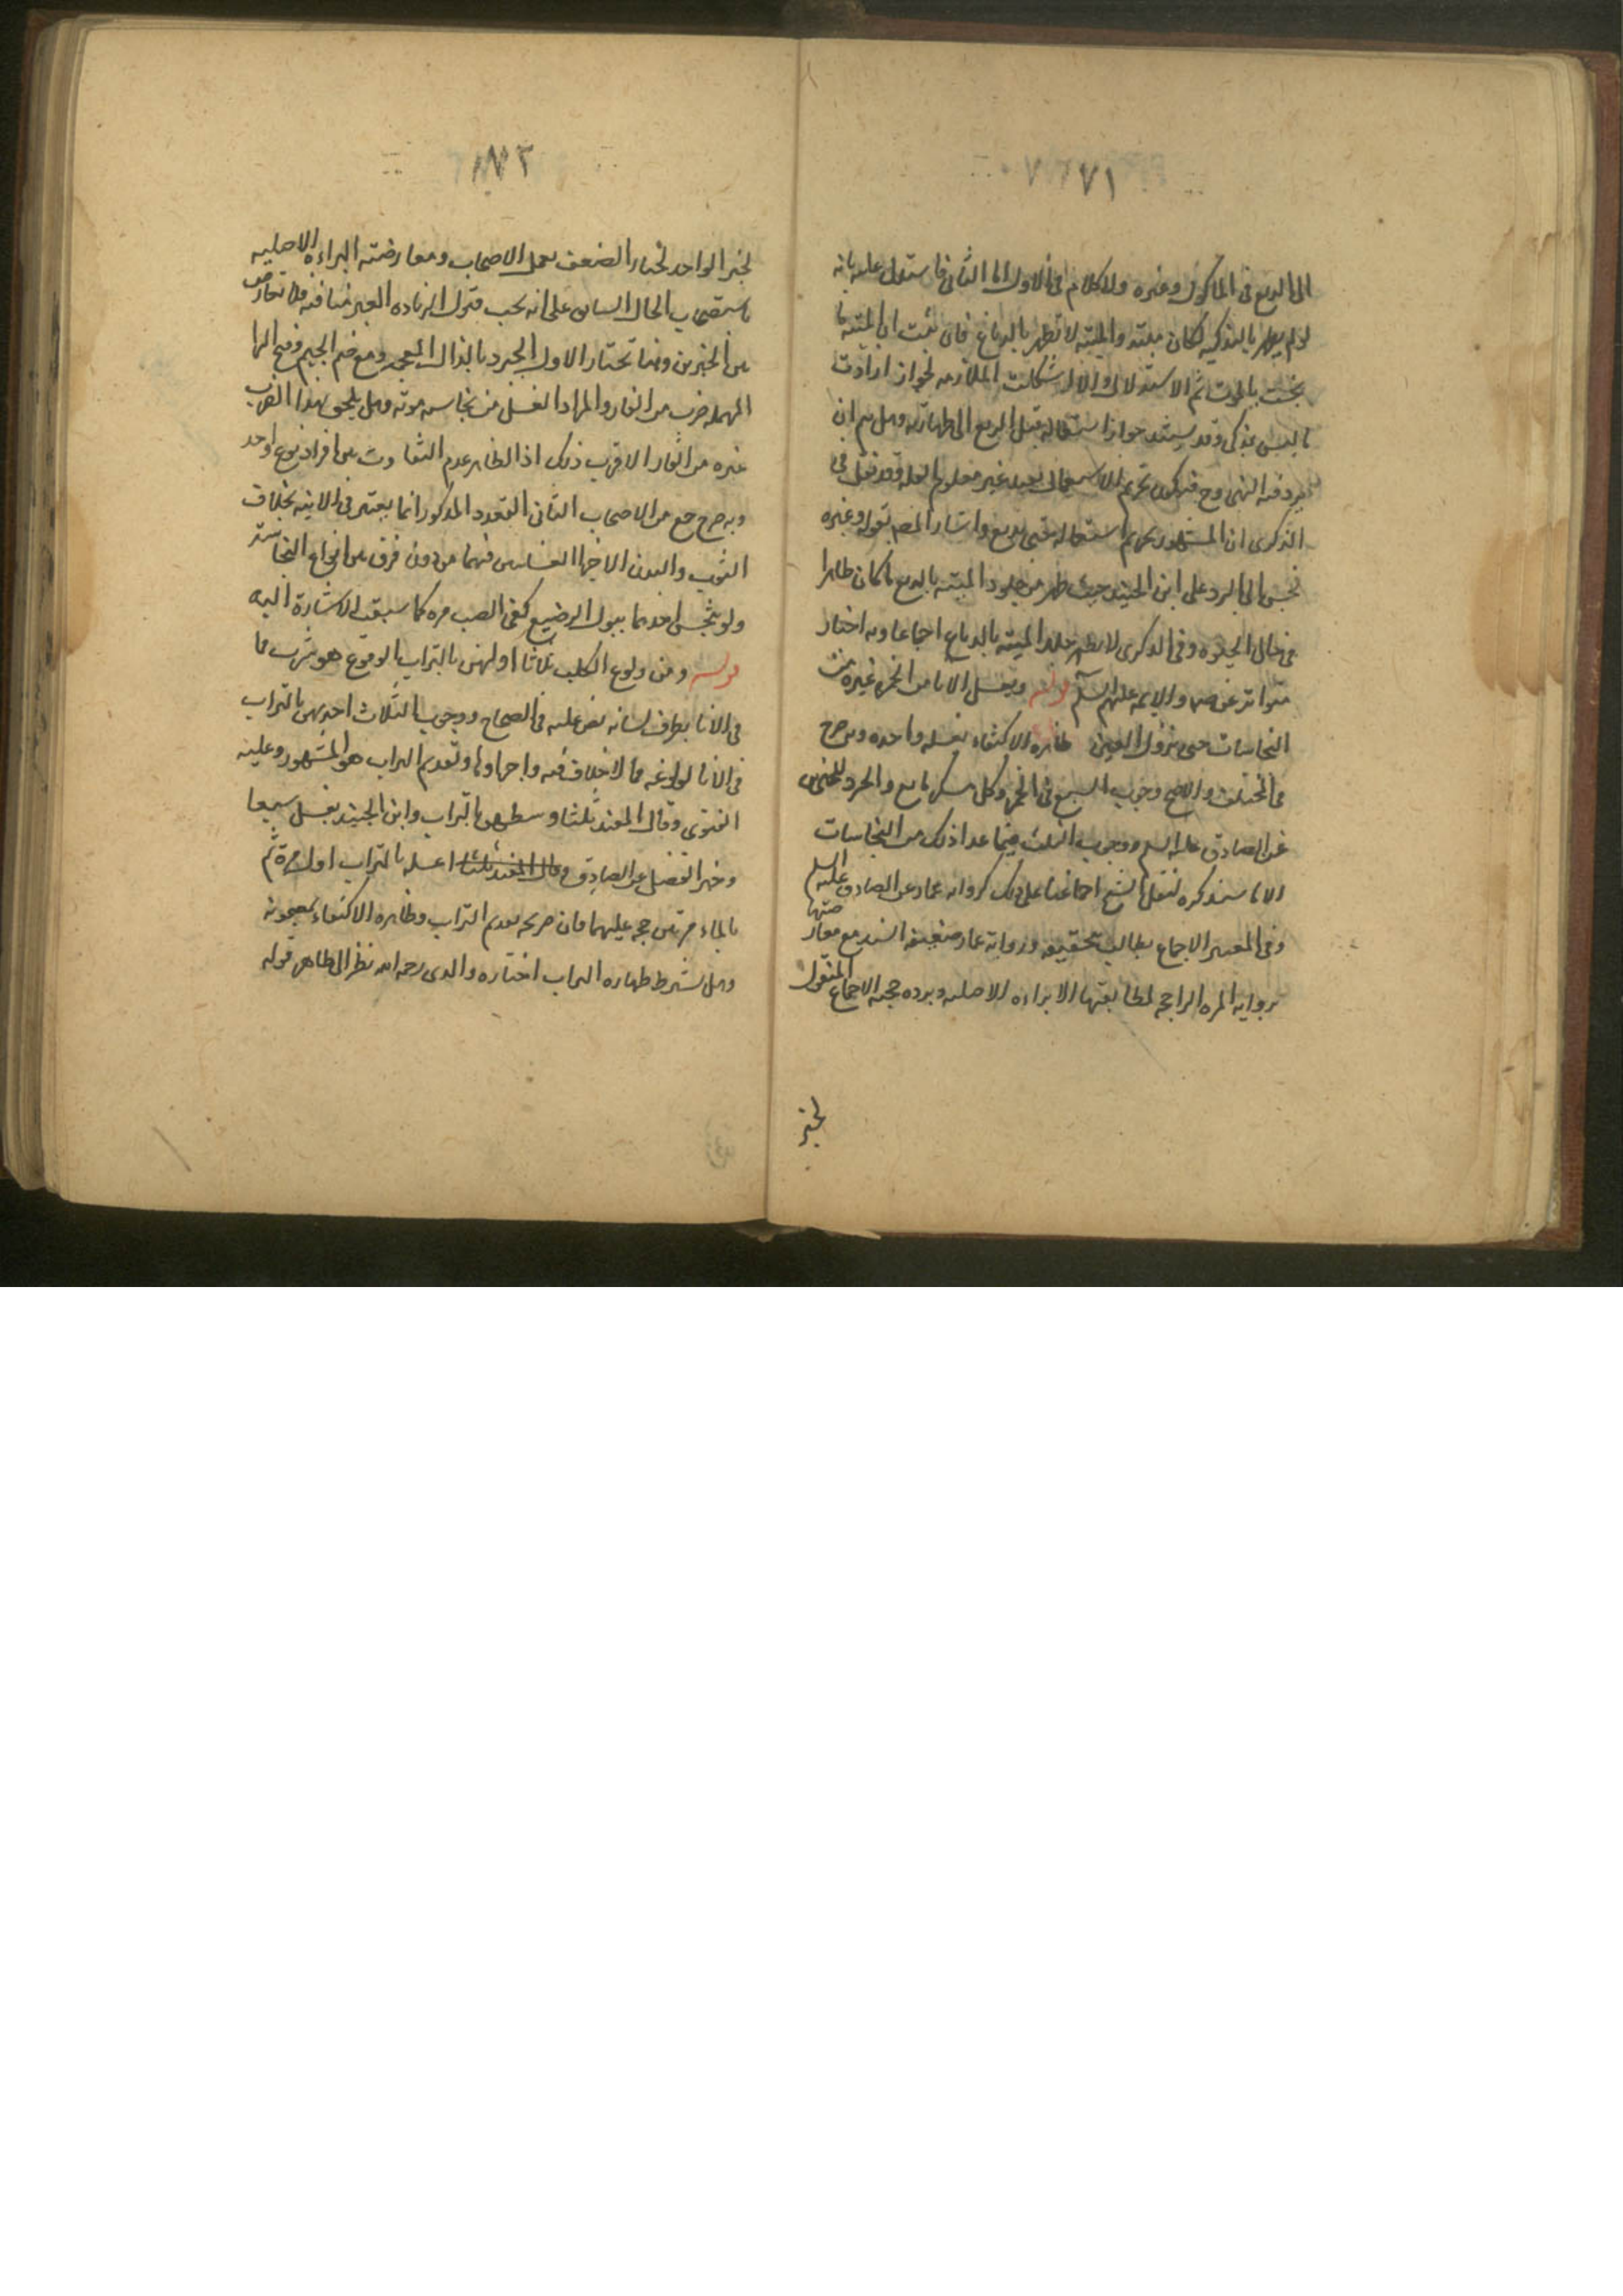 ٧١
الى الدبغ فى الماكول وغيره ولا كلام فى الاول اما الثانى فاستدل عليه بانه
لو لم يطهر بالتذكيه لكان ميته والميته لا تطهر بالدباغ فان ثبت ان الميته ما
نجست بالموت تم الاستدلال والا اشكلت الملازمه لجواز ارادت
ما ليس بمذكى وقد يستند جواز استعماله قبل الدبغ الى طهارته وهل تم ان
يرد فيه النهى وح فيكون تحريم الاستعمال بعيد غير معلوم العله وقد نقل فى
الذكرى ان المشهور تحريم استعماله حتى يدبغ واشار المصـ بقوله وغيره
نجس الى الرد على ابن الجنيد حيث طهر من جلود الميته بالدبغ ما كان طاهرا
فى حال الحيوه وفى الذكرى لا يطهر جلد الميته بالدباغ اجماعا وبه اخبار
متواتره عن والايمه عليهم السلم قوله ويغسل الانا من الخمر وغيره من
النجاسات حتى تزول العين ظاهره الاكتفاء بغسله واحده وبه صرح
فى المختلف والاصح وجوب السبع فى الخمر وكل مسكر مايع والجرد للخبرين
عن الصادق عليه السلم ووجوب الثلث فيما عدا ذلك من النجاسات
الا ما سنذكره لنقل الشيخ اجماعنا على ذلك كروايه عمار عن الصادق عليه السلم
وفى المعتبر الاجماع يطالب بتحقيقه وروايه عمار ضعيفه السند مع معارضتها
بروايه المره الراجحه لمطابقتها الا براءه الاصليه ويرده حجيه الاجماع المنقول
لخبر
٧٢
لخبر الواحد لجبار الضعف بعمل الاصحاب ومعارضته البراءه الاصليه
باستصحاب الحال السابق على انه يجب قبول الزياده الغير منافيه فلا تعارض
بين الخبرين وهنا تختار الاول الجرد بالذال المعجمه ومع ضم الجيم وفتح الرا
المهمله ضرب من الفار والمراد الغسل من نجاسه موته وهل يلحق بهذا الضرب
غيره من الفار الاقرب ذلك اذ الظاهر عدم التفاوت بين افراد نوع واحد
وبه صرح جمع من الاصحاب الثانى التعدد المذكور انما يعتبر فى الانيه بخلاف
الثوب والبدن الاخيرا الغسلتين فيهما من دون فرق بين انواع النجاسة
ولو تنجس احدهما ببول الرضيع كفى الصب مره كما سبقت الاشارة اليه
قوله ومن ولوغ الكلب ثلاثا اولهن بالتراب الولوغ هو شرب ما
فى الانا بطرف لسانه نص عليه فى الصحاح ووجوب الثلاث احديهن بالتراب
فى الانا لولوغه مما لا خلاف فيه واجماعا وتقديم التراب هو المشهور وعليه
الفتوى وقال المفيد ثلثا وسطهن بالتراب وابن الجنيد يغسل سبعا
وخبر الفضل عن الصادق وقال المفيد ثلثا اغسله بالتراب اول مرة ثم
بالماء مرتين حجه عليهما فان صريحه تقديم التراب وظاهره الاكتفاء بمعجونه
وهل يشترط طهاره التراب اختاره والدى رحمه الله نظرا الى ظاهر قوله